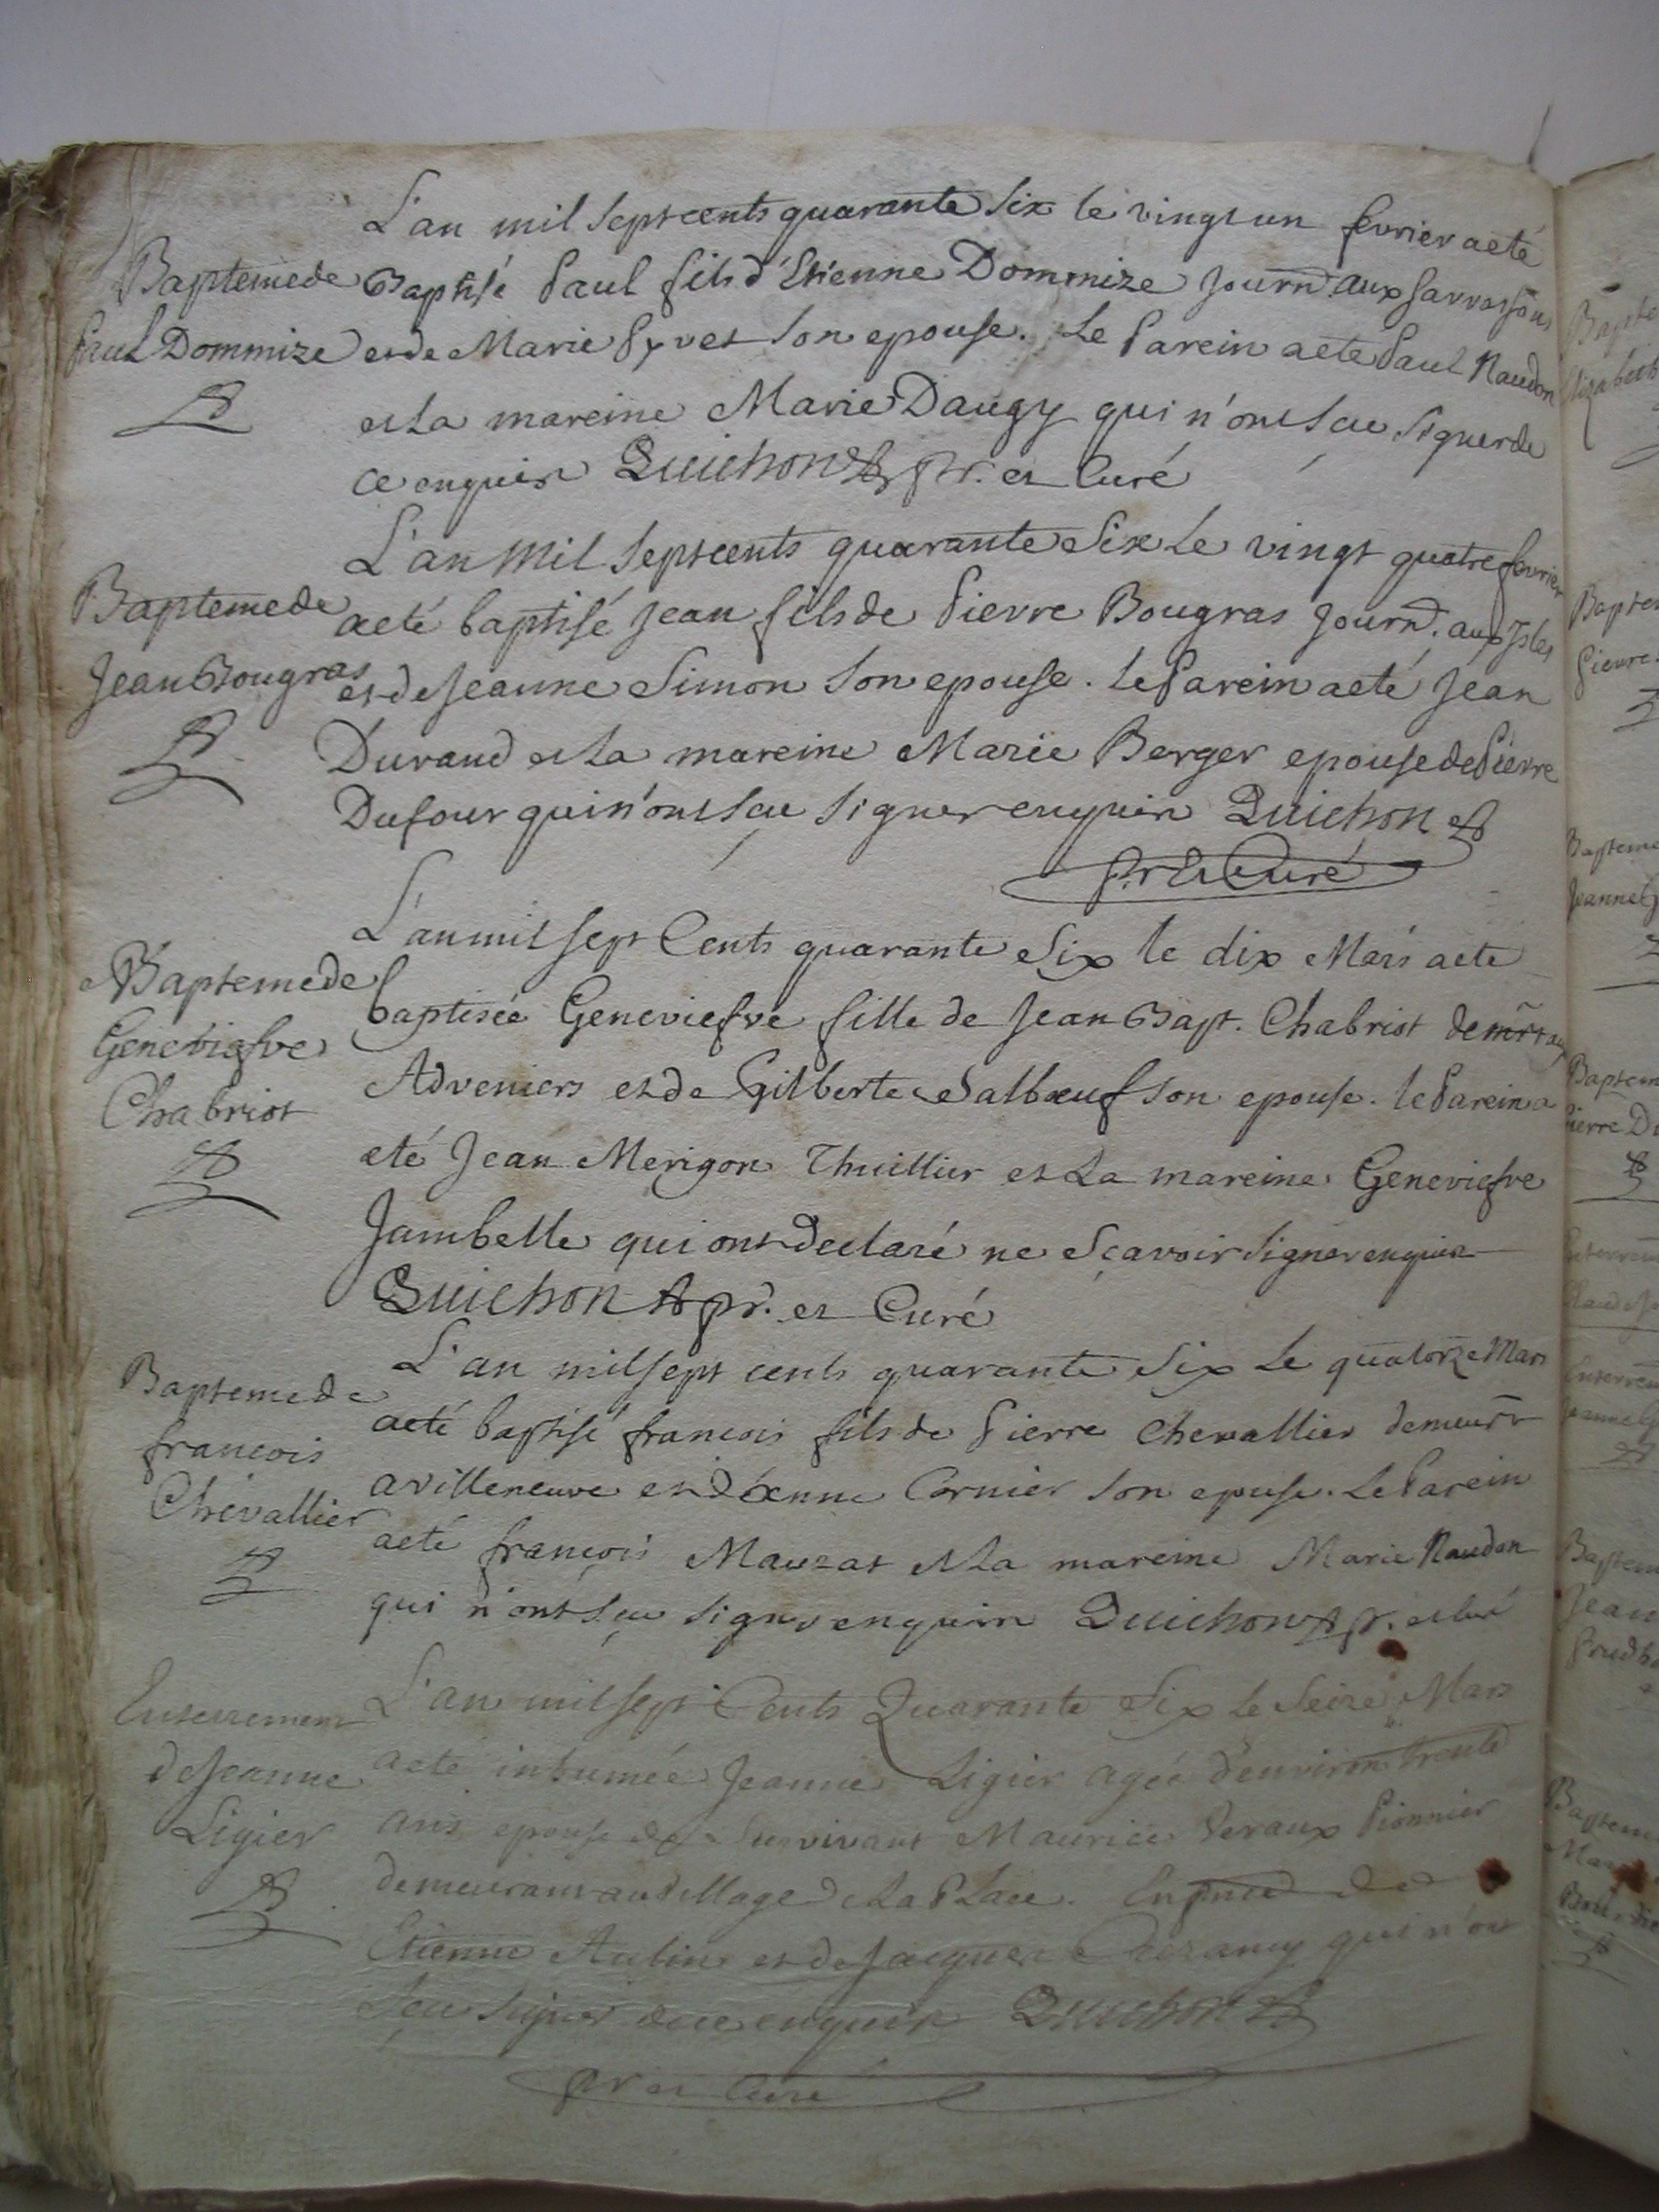 L'an mil sept cents quarante six le vingt un fevrier a eté
Bapteme de
Baptisé Paul fils d'Etienne Dommize Journr. aux
Paul Dommize
et de Marie son epouse. Le Parein a eté Paul Naudon
et la mareine Marie Daugy qui n'ont sçu signer de
ce enquis Quichon pr. et Curé
L'an mil sept cents quarante six Le vingt quatre fevrier
Bapteme de
a eté baptisé Jean fils de Pierre Bougras Journr. aux Isles
Jean Bougras
et de Jeanne Simon son epouse. le Parein a eté Jean
Durand et la mareine Marie Berger epouse de Pierre
Dufour qui n'ont sçu signer enquis Quichon
Pr. et Curé
L'an mil sept Cents quarante six le dix Mars a eté
Bapteme de
baptisée Geneviefve fille de Jean Bapt. Chabriot demrt aux
Geneviefve
Chabriot
Adveniers et de Gilberte Salbœuf son epouse. le Parein a
eté Jean Merigon Thuillier et La mareine Geneviefve
Jambelle qui ont declaré ne sçavoir signer enquis
Quichon pr. et Curé
L'an mil sept cents quarante six Le quatorze Mars
Bapteme de
a eté baptisé francois fils de Pierre Chevallier demeurt
francois
a villeneuve et d'Anne Cornier son epouse. Le Parein
Chevallier
a eté françois Mauzat et La mareine Marie Naudon
qui n'ont sçu signer enquis Quichon pr. et Curé
L'an mil sept Cents Quarante Six Le Seize Mars
Enterrement
de Jeanne
a eté inhumée Jeanne Ligier agée d'environ trente
Ligier
ans epouse de survivant Maurice Pionnier
demeurant au village de La Place. En pnce de
Etienne Aulin et de Jacques qui n'ont
sçu signer de ce enquis Quichon
pr et Curé